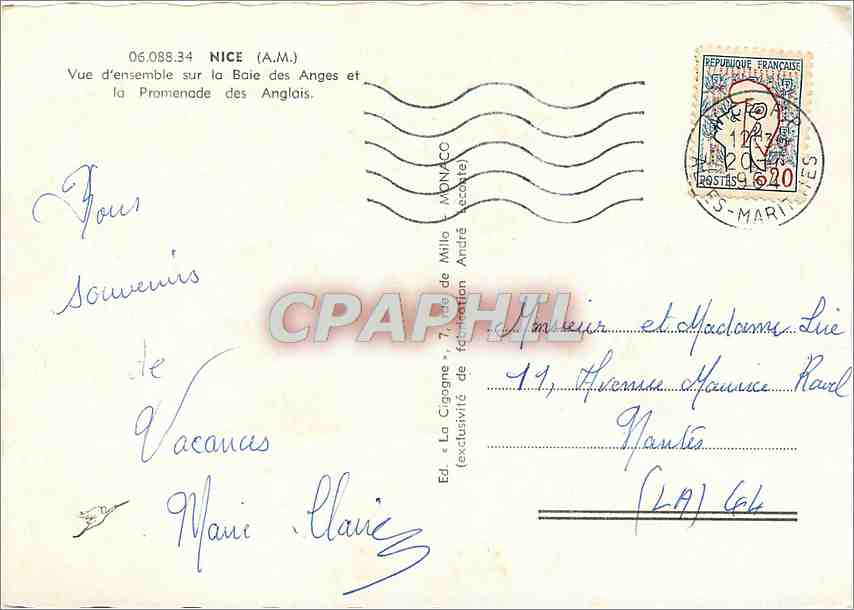 06.088.34 NICE (A.M.)
Vue d'ensemble sur la Baie des Anges et
la Promenade des Anglais.
souvenirs
de
Vacances
Marie Claire
Ed. « La Cigogne », 7, rue de Millo - MONACO
(exclusivité de fabrication André Leconte)
REPUBLIQUE FRANÇAISE
POSTES 0,20
ALPES-MARITIMES
CPAPHIL
Monsieur et Madame
11, Avenue Maurice Ravel
Nantes
(LA) 44